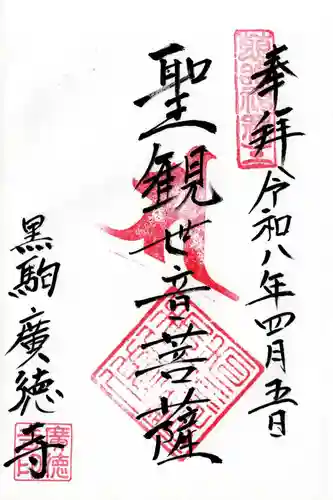 奉拝
令和八年四月五日
聖観世音菩薩
黒駒廣徳寺
廣徳
寺印